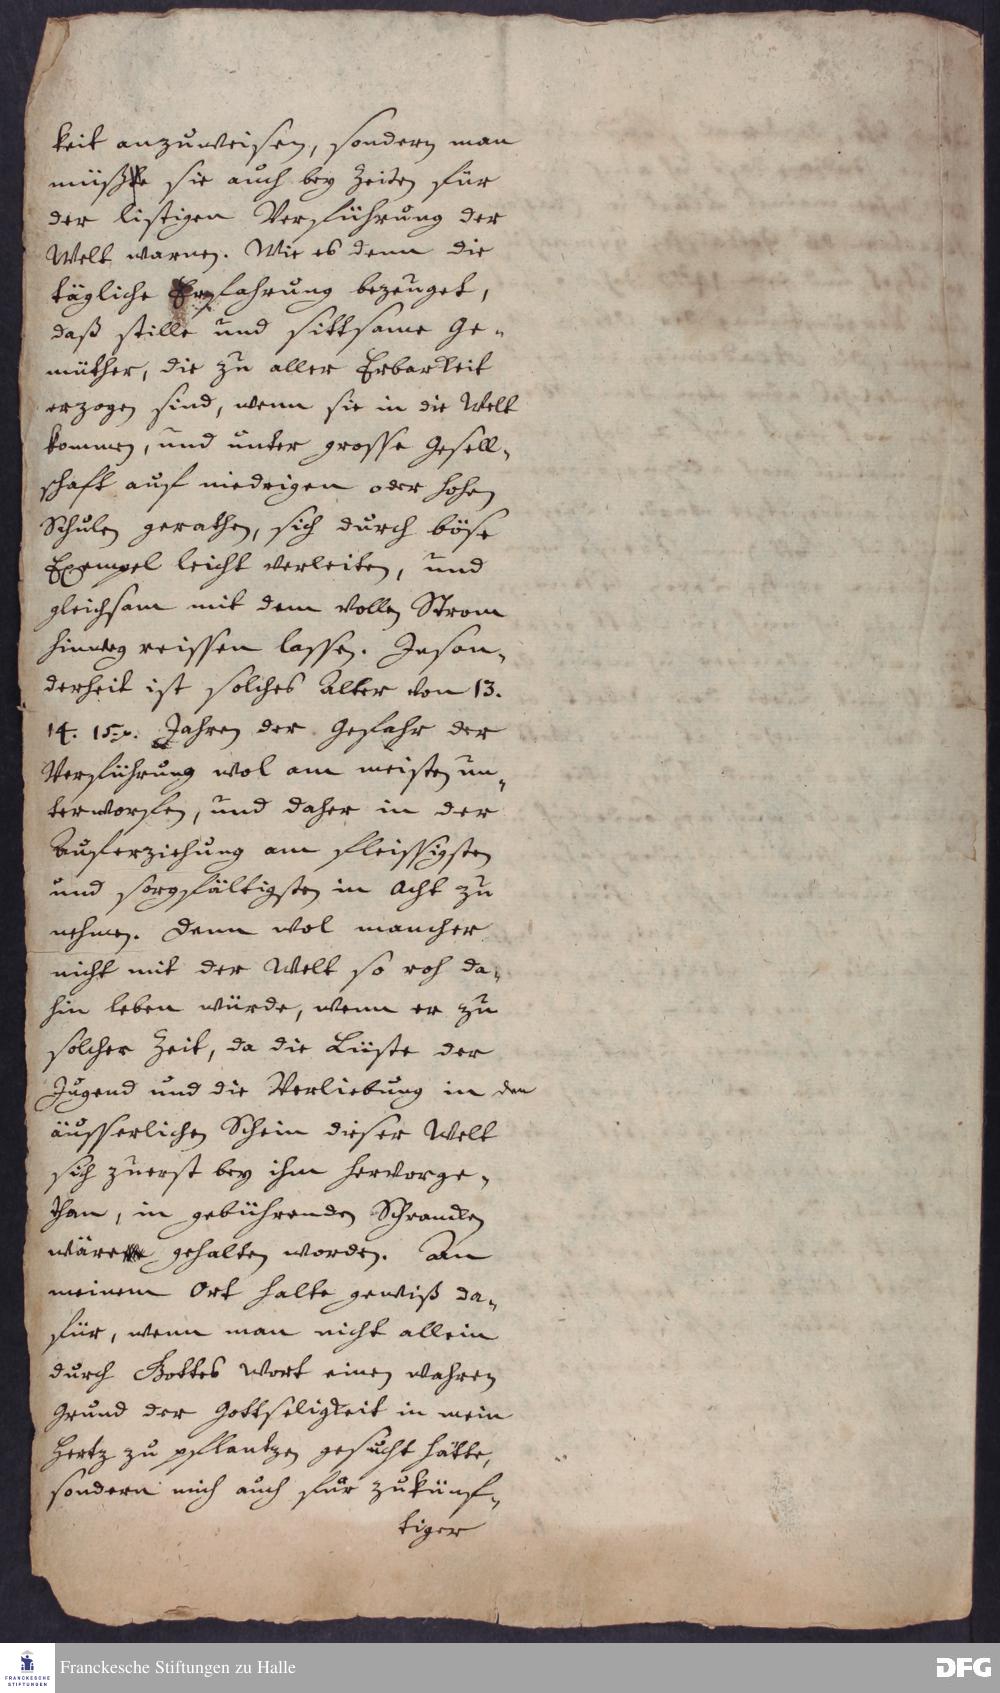 keit anzuweisen, sondern man
müße sie auch bey Zeiten für
der listigen Verführung der
Welt warnen. Wie es denn die
tägliche Erfahrung bezeuget,
daß stille und sittsame Ge-
müther, die zu aller Erbarkeit
erzogen sind, wenn sie in die Welt
kommen, und unter grosse Gesell-
schaft auf niedrigen oder hohen
Schulen gerathen, sich durch böse
Exempel leicht verleiten, und
gleichsam mit dem vollen Strom
hinweg reissen lassen. Inson-
derheit ist solches Alter von 13.
14. 15. Jahren der Gefahr der
Verführung wol am meisten un-
terworfen, und daher in der
Auferziehung am fleissigsten
und sorgfältigsten in Acht zu
nehmen. Denn wol mancher
nicht mit der Welt so roh da-
hin leben würde, wenn er zu
solcher Zeit, da die Lüste der
Jugend und die Verliebung in den
äusserlichen Schein dieser Welt
sich zuerst bey ihm hervorge-
than, in gebührenden Schrancken
wäre gehalten worden. An
meinem Ort halte gewiß da-
für, wenn man nicht allein
durch Gottes Wort einen wahren
Grund der Gottseligkeit in mein
Hertz zu pflantzen gesucht hätte,
sondern mich auch für zukünf-
tiger
Franckesche Stiftungen zu Halle
FRANCKESCHE
STIFTUNGEN
DFG